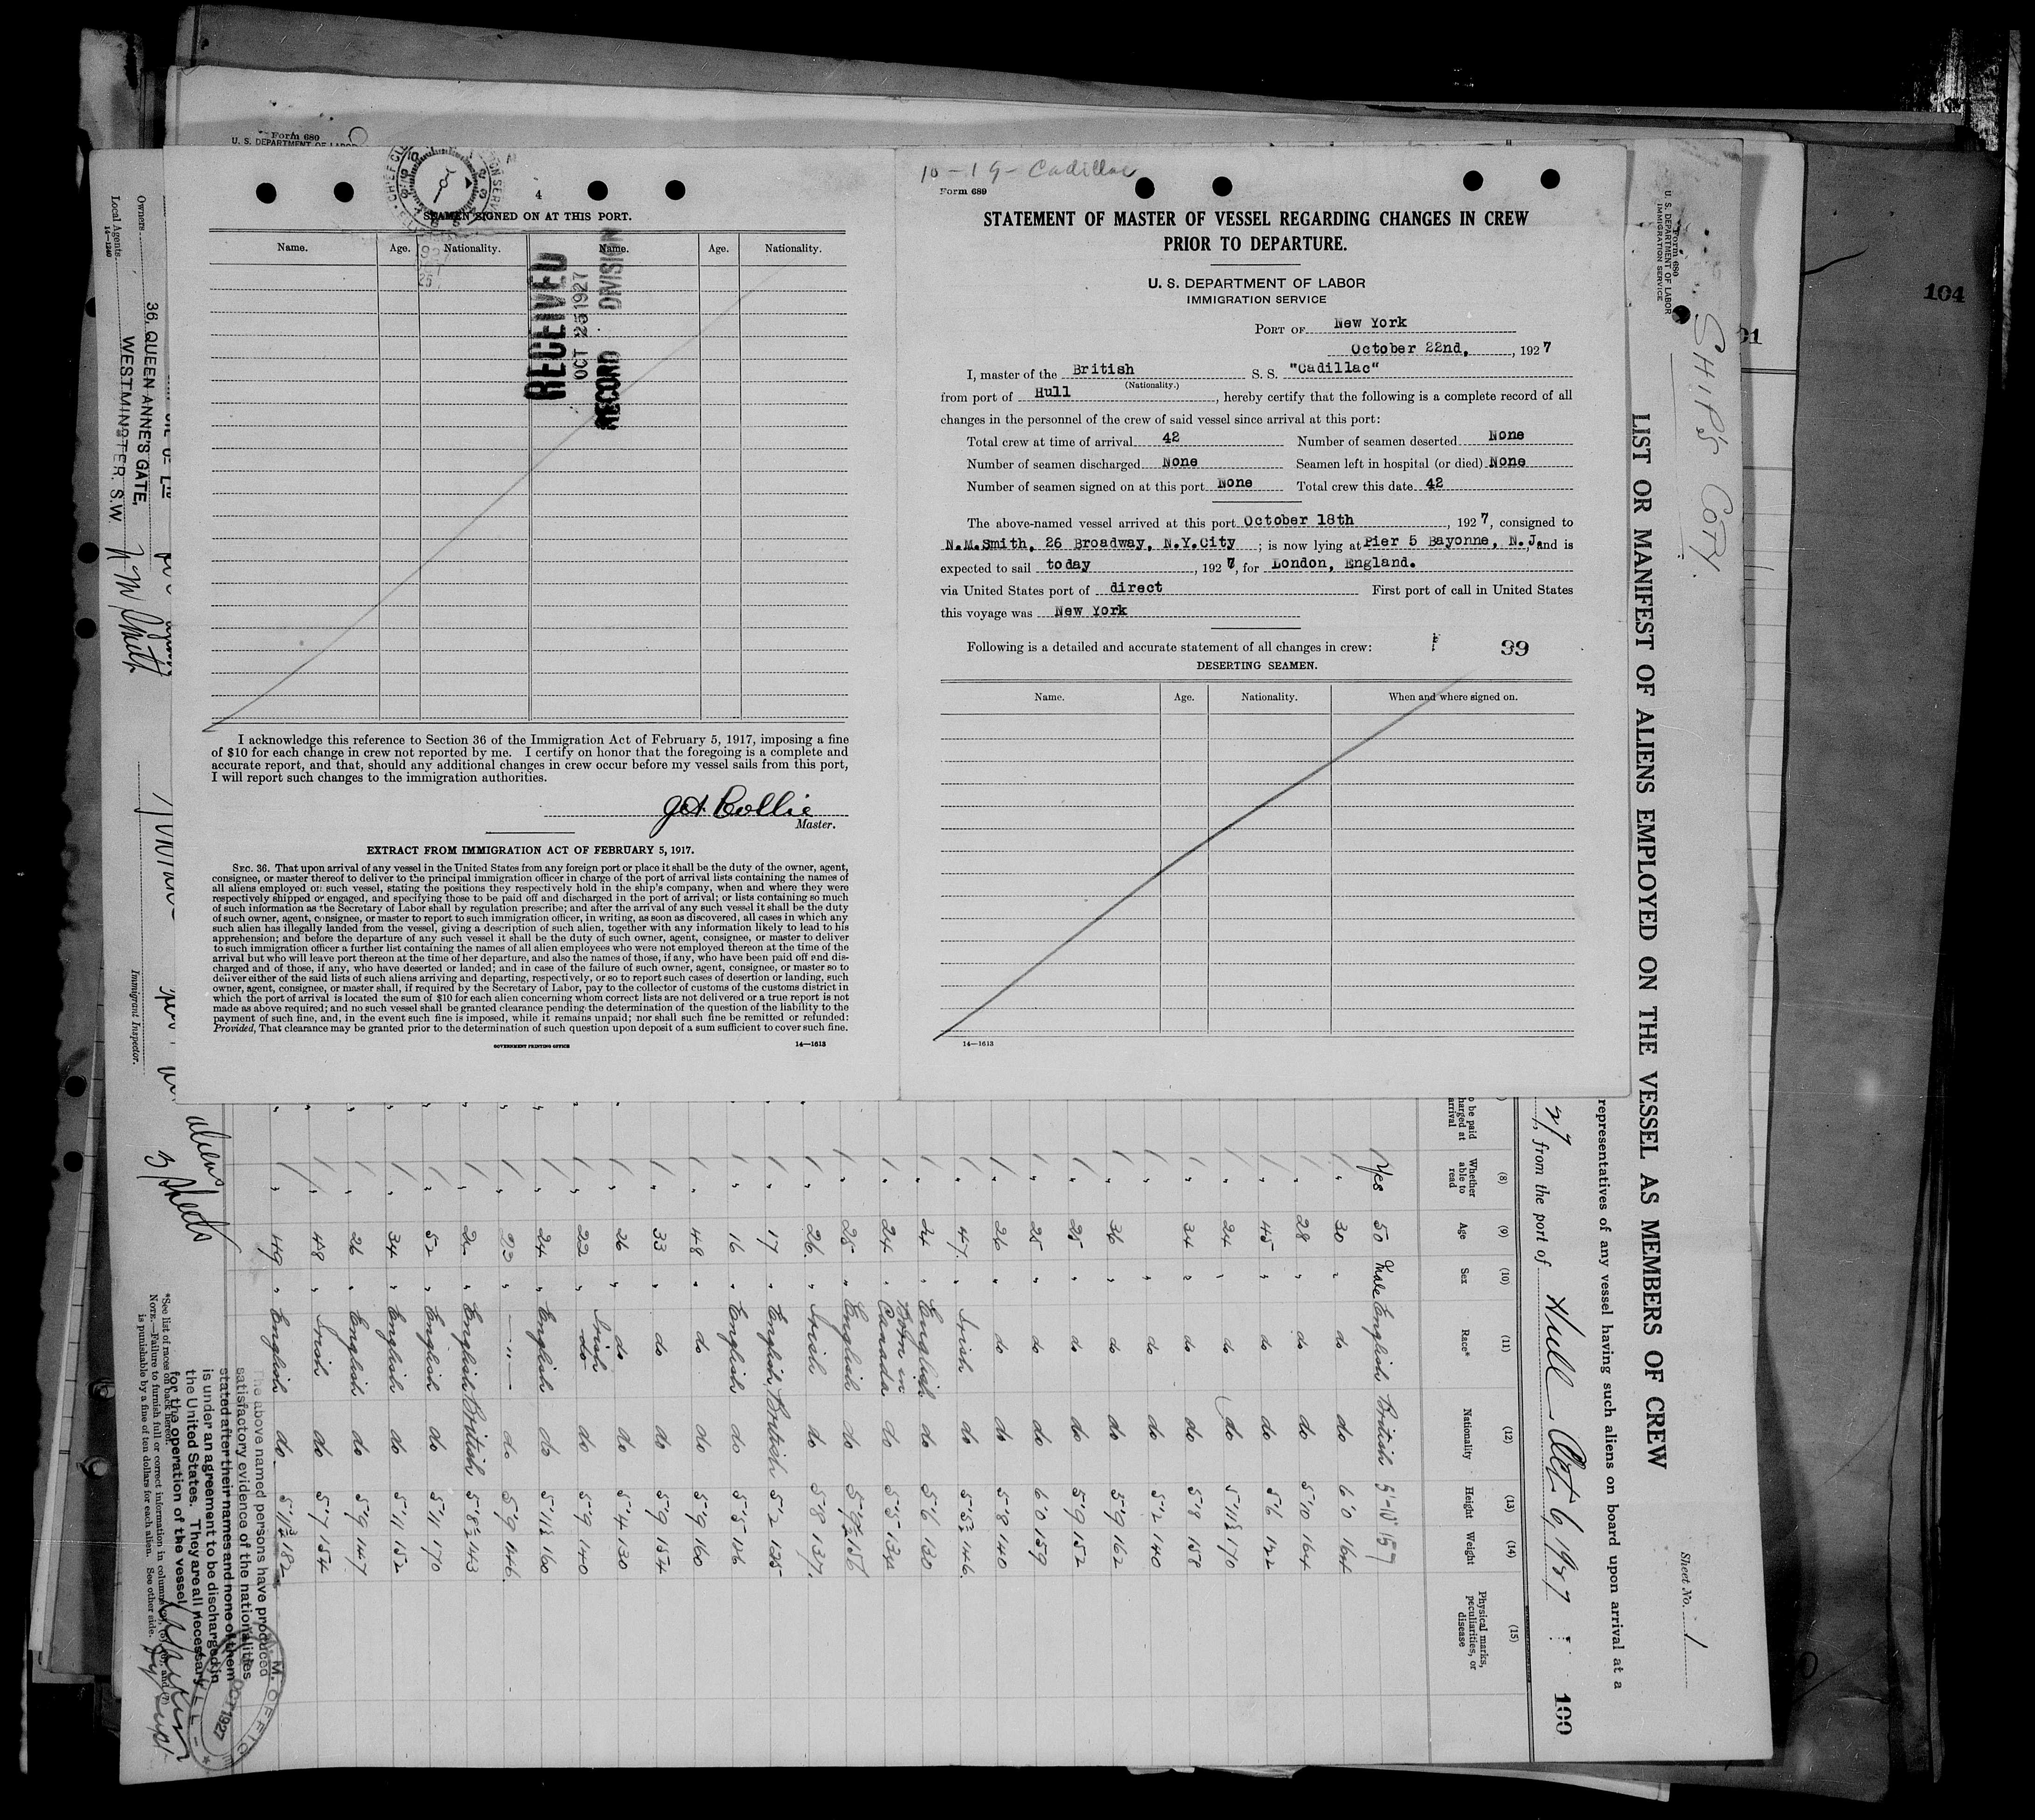 Form 680
U. S. DEPARTMENT OF LABOR
4
SEAMEN SIGNED ON AT THIS PORT.
Name. Age. Nationality. Name. Age. Nationality.
RECEIVED
OCT 25 1927
RECORD DIVISION
I acknowledge this reference to Section 36 of the Immigration Act of February 5, 1917, imposing a fine
of $10 for each change in crew not reported by me. I certify on honor that the foregoing is a complete and
accurate report, and that, should any additional changes in crew occur before my vessel sails from this port,
I will report such changes to the immigration authorities.
Collie
Master.
EXTRACT FROM IMMIGRATION ACT OF FEBRUARY 5, 1917.
SEC. 36. That upon arrival of any vessel in the United States from any foreign port or place it shall be the duty of the owner, agent,
consignee, or master thereof to deliver to the principal immigration officer in charge of the port of arrival lists containing the names of
all aliens employed on such vessel, stating the positions they respectively hold in the ship's company, when and where they were
respectively shipped or engaged, and specifying those to be paid off and discharged in the port of arrival; or lists containing so much
of such information as the Secretary of Labor shall by regulation prescribe; and after the arrival of any such vessel it shall be the duty
of such owner, agent, consignee, or master to report to such immigration officer, in writing, as soon as discovered, all cases in which any
such alien has illegally landed from the vessel, giving a description of such alien, together with any information likely to lead to his
apprehension; and before the departure of any such vessel it shall be the duty of such owner, agent, consignee, or master to deliver
to such immigration officer a further list containing the names of all alien employees who were not employed thereon at the time of the
arrival but who will leave port thereon at the time of her departure, and also the names of those, if any, who have been paid off and dis-
charged and of those, if any, who have deserted or landed; and in case of the failure of such owner, agent, consignee, or master so to
deliver either of the said lists of such aliens arriving and departing, respectively, or so to report such cases of desertion or landing, such
owner, agent, consignee, or master shall, if required by the Secretary of Labor, pay to the collector of customs of the customs district in
which the port of arrival is located the sum of $10 for each alien concerning whom correct lists are not delivered or a true report is not
made as above required; and no such vessel shall be granted clearance pending the determination of the question of the liability to the
payment of such fine, and, in the event such fine is imposed, while it remains unpaid; nor shall such fine be remitted or refunded:
Provided, That clearance may be granted prior to the determination of such question upon deposit of a sum sufficient to cover such fine.
GOVERNMENT PRINTING OFFICE 14—1613
10-19-Cadillac
Form 689
STATEMENT OF MASTER OF VESSEL REGARDING CHANGES IN CREW
PRIOR TO DEPARTURE.
U. S. DEPARTMENT OF LABOR
IMMIGRATION SERVICE
PORT OF New York
October 22nd, , 1927
I, master of the British S. S. "Cadillac"
(Nationality.)
from port of Hull , hereby certify that the following is a complete record of all
changes in the personnel of the crew of said vessel since arrival at this port:
Total crew at time of arrival 42 Number of seamen deserted None
Number of seamen discharged None Seamen left in hospital (or died) None
Number of seamen signed on at this port None Total crew this date 42
The above-named vessel arrived at this port October 18th , 1927, consigned to
N.M.Smith, 26 Broadway, N.Y.City ; is now lying at Pier 5 Bayonne, N.J. and is
expected to sail today , 1927, for London, England.
via United States port of direct First port of call in United States
this voyage was New York
Following is a detailed and accurate statement of all changes in crew: 99
DESERTING SEAMEN.
Name. Age. Nationality. When and where signed on.
14—1613
104
SHIP'S COPY.
Form 680
U. S. DEPARTMENT OF LABOR
IMMIGRATION SERVICE
Sheet No. 1
LIST OR MANIFEST OF ALIENS EMPLOYED ON THE VESSEL AS MEMBERS OF CREW
representatives of any vessel having such aliens on board upon arrival at a
27, from the port of Hull Oct 6, 1927 100
(8) (9) (10) (11) (12) (13) (14) (15)
Whether able to read Age Sex Race* Nationality Height Weight Physical marks, peculiarities, or disease
Yes 50 Male English British 5'-10 157
" 30 " do do 6'0 164
" 28 " do do 5'10 164
" 45 " do do 5'6 142
" 24 " do do 5'11½ 170
" 34 " do do 5'8 158
" do do 5'2 140
" 36 " do do 5'9 162
" 25 " do do 5'9 152
" 25 " do do 6'0 159
" 26 " do do 5'8 140
" 47 " Irish do 5'5½ 146
" 24 " English do 5'6 130
" 24 " Born in Canada do 5'5 134
" 25 " English do 5'9½ 156
" 26 " Irish do 5'8 137
" 17 " English British 5'2 125
" 16 " English do 5'5 126
" 48 " do do 5'9 160
" 33 " do do 5'9 154
" 26 " do do 5'4 130
" 22 " Irish do 5'9 140
" 24 " English do 5'11½ 160
" 23 " do 5'9 146
" 21 " English British 5'8½ 143
" 52 " English do 5'11 170
" 34 " English do 5'11 152
" 26 " English do 5'9 147
" 48 " Irish do 5'7 154
" 49 " English do 5'11½ 182
The above named persons have produced
satisfactory evidence of the nationalities
stated after their names and none of them
is under an agreement to be discharged in
the United States. They are all necessary
for the operation of the vessel
OCT 1927
aliens
3 sheets
*See list of races on back hereof.
NOTE.—Failure to furnish full or correct information in columns
is punishable by a fine of ten dollars for each alien. See other side.
Immigrant Inspector.
Owners
36, QUEEN ANNE'S GATE,
WESTMINSTER. S.W
Local Agents N M Smith
14—1240